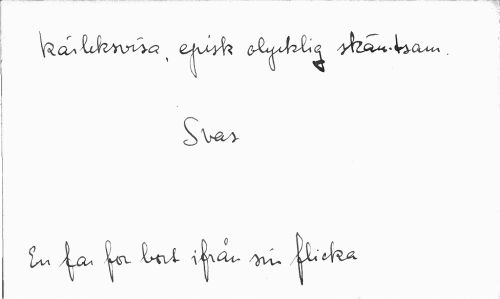 Kärleksvisa, episk olycklig skämtsam.
Svas
En far for bort ifrån sin flicka